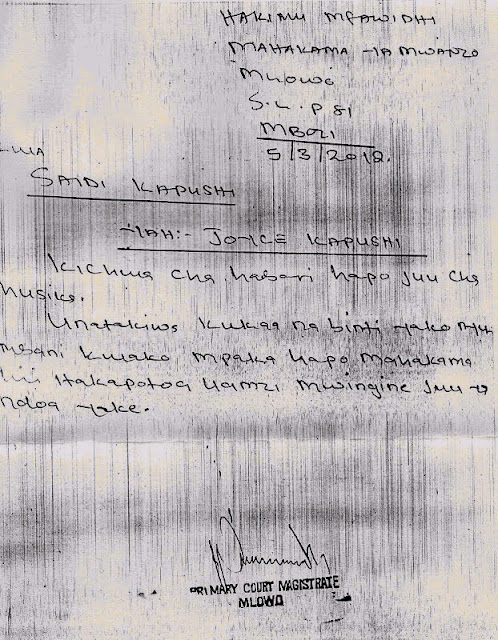 HAKIMU MFAWIDHI
MAHAKAMA YA MWANZO
MLOWO
S.L.P 81
MBOZI
5/3/2012.
KWA
SAIDI KAPUSHI
YAH:- JOYCE KAPUSHI
Kichwa cha habari hapo juu cha
husika.
Unatakiwa kukaa na binti yako
mbani kwako mpaka hapo Mahakama
itakapotoa uamzi mwingine juu ya
ndoa yake.
PRIMARY COURT MAGISTRATE
MLOWO